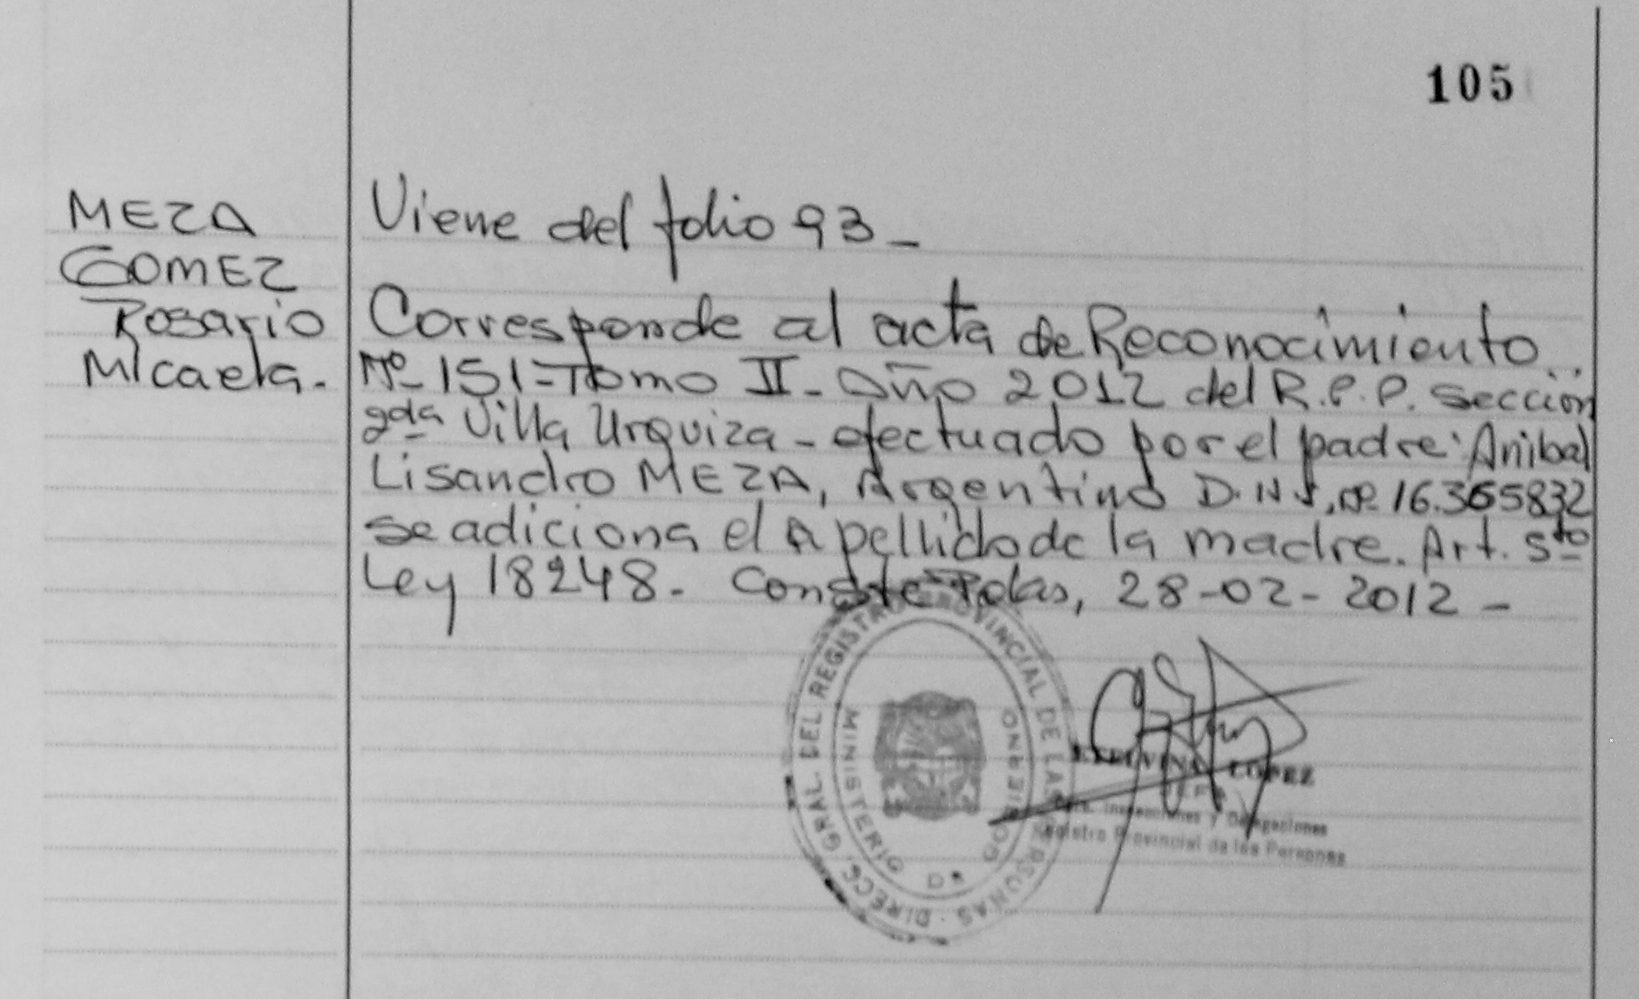 105
MEZA
GOMEZ
Rosario
Micaela.
Viene del folio 93_
Corresponde al acta de Reconocimiento..
Nº 151-Tomo II- Año 2012 del R.P.P. Sección
2da Villa Urquiza - efectuado por el padre: Anibal
Lisandro MEZA, Argentino D.N.I. Nº 16.365832
se adiciona el apellido de la madre. Art. 5to
Ley 18248. Conste Pdas, 28-02-2012 -
DIRECC. GRAL. DEL REGISTRO PROVINCIAL DE LAS PERSONAS
MINISTERIO DE GOBIERNO
LOPEZ
JEFE
Inspecciones y Delegaciones
Registro Provincial de las Personas